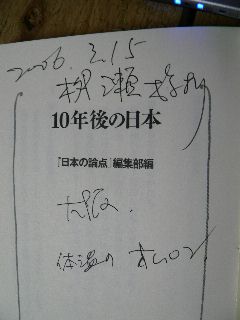 2006.2.15
柳瀬
10年後の日本
『日本の論点』編集部編
大阪.